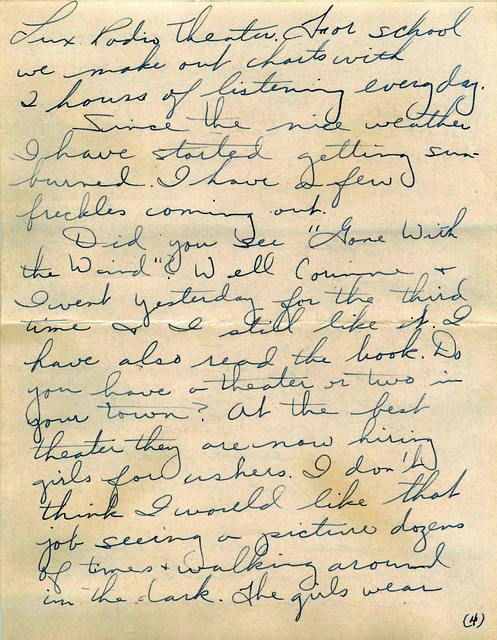 Lux Radio Theater. For school
we make out charts with
2 hours of listening everyday.
Since the nice weather
I have started getting sun-
burned. I have a few
freckles coming out.
Did you see "Gone With
the Wind"? Well Corinne +
I went yesterday for the third
time & I still like it. I
have also read the book. Do
you have a theater or two in
your town? At the best
theater they are now hiring
girls for ushers. I don't
think I would like that
job seeing a picture dozens
of times + walking around
in the dark. The girls wear
(4)